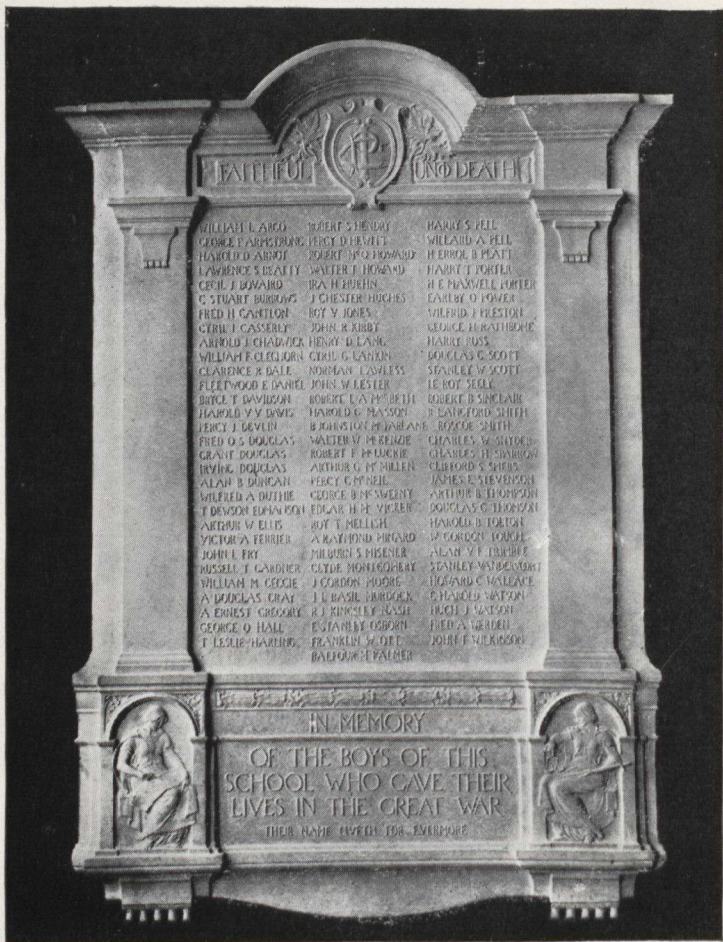 FAITHFUL UNTO DEATH
WILLIAM L ARGO
GEORGE F ARMSTRONG
HAROLD D ARNOT
LAWRENCE S BEATTY
CECIL J BOVAIRD
C STUART BURROWS
FRED H CANTLON
CYRIL J CASSERLY
ARNOLD J CHADWICK
WILLIAM F CLEGHORN
CLARENCE R DALE
FLEETWOOD E DANIEL
BRYCE T DAVIDSON
HAROLD V V DAVIS
PERCY J DEVLIN
FRED O S DOUGLAS
GRANT DOUGLAS
IRVING DOUGLAS
ALAN B DUNCAN
WILFRED A DUTHIE
T DEWSON EDMANSON
ARTHUR W ELLIS
VICTOR A FERRIER
JOHN L FRY
RUSSELL T GARDNER
WILLIAM M GEGGIE
A DOUGLAS GRAY
A ERNEST GREGORY
GEORGE O HALL
T LESLIE HARLING
ROBERT S HENDRY
PERCY D HEWITT
ROBERT McQ HOWARD
WALTER T HOWARD
IRA H HUEHN
J CHESTER HUGHES
ROY V JONES
JOHN R KIRBY
HENRY D LANG
CYRIL G LANKIN
NORMAN LAWLESS
JOHN W LESTER
ROBERT L A McBETH
HAROLD G MASSON
B JOHNSTON McFARLANE
WALTER W McKENZIE
ROBERT F McLUCKIE
ARTHUR G McMILLEN
PERCY G McNEIL
GEORGE B McSWEENY
EDGAR H McVICKER
ROY T MELLISH
A RAYMOND MINARD
MILBURN S MISENER
CLYDE MONTGOMERY
J GORDON MOORE
J L BASIL MURDOCK
R J KINGSLEY NASH
E STANLEY OSBORN
FRANKLIN W OTT
BALFOUR M PALMER
HARRY S PELL
WILLARD A PELL
H ERROL B PLATT
HARRY T PORTER
H E MAXWELL PORTER
EARLBY O POWER
WILFRID J PRESTON
GEORGE H RATHBONE
HARRY ROSS
DOUGLAS G SCOTT
STANLEY W SCOTT
LE ROY SEELY
ROBERT B SINCLAIR
R LANGFORD SMITH
ROSCOE SMITH
CHARLES W SNYDER
CHARLES H SPARROW
CLIFFORD S
JAMES E STEVENSON
ARTHUR B THOMPSON
DOUGLAS G THOMSON
HAROLD B TOLTON
W GORDON TOUGH
ALAN V F TRIMBLE
STANLEY VANDERVOORT
HOWARD C WALLACE
C HAROLD WATSON
HUGH J WATSON
FRED A WERDEN
JOHN F WILKINSON
IN MEMORY
OF THE BOYS OF THIS
SCHOOL WHO GAVE THEIR
LIVES IN THE GREAT WAR
THEIR NAME LIVETH FOR EVERMORE